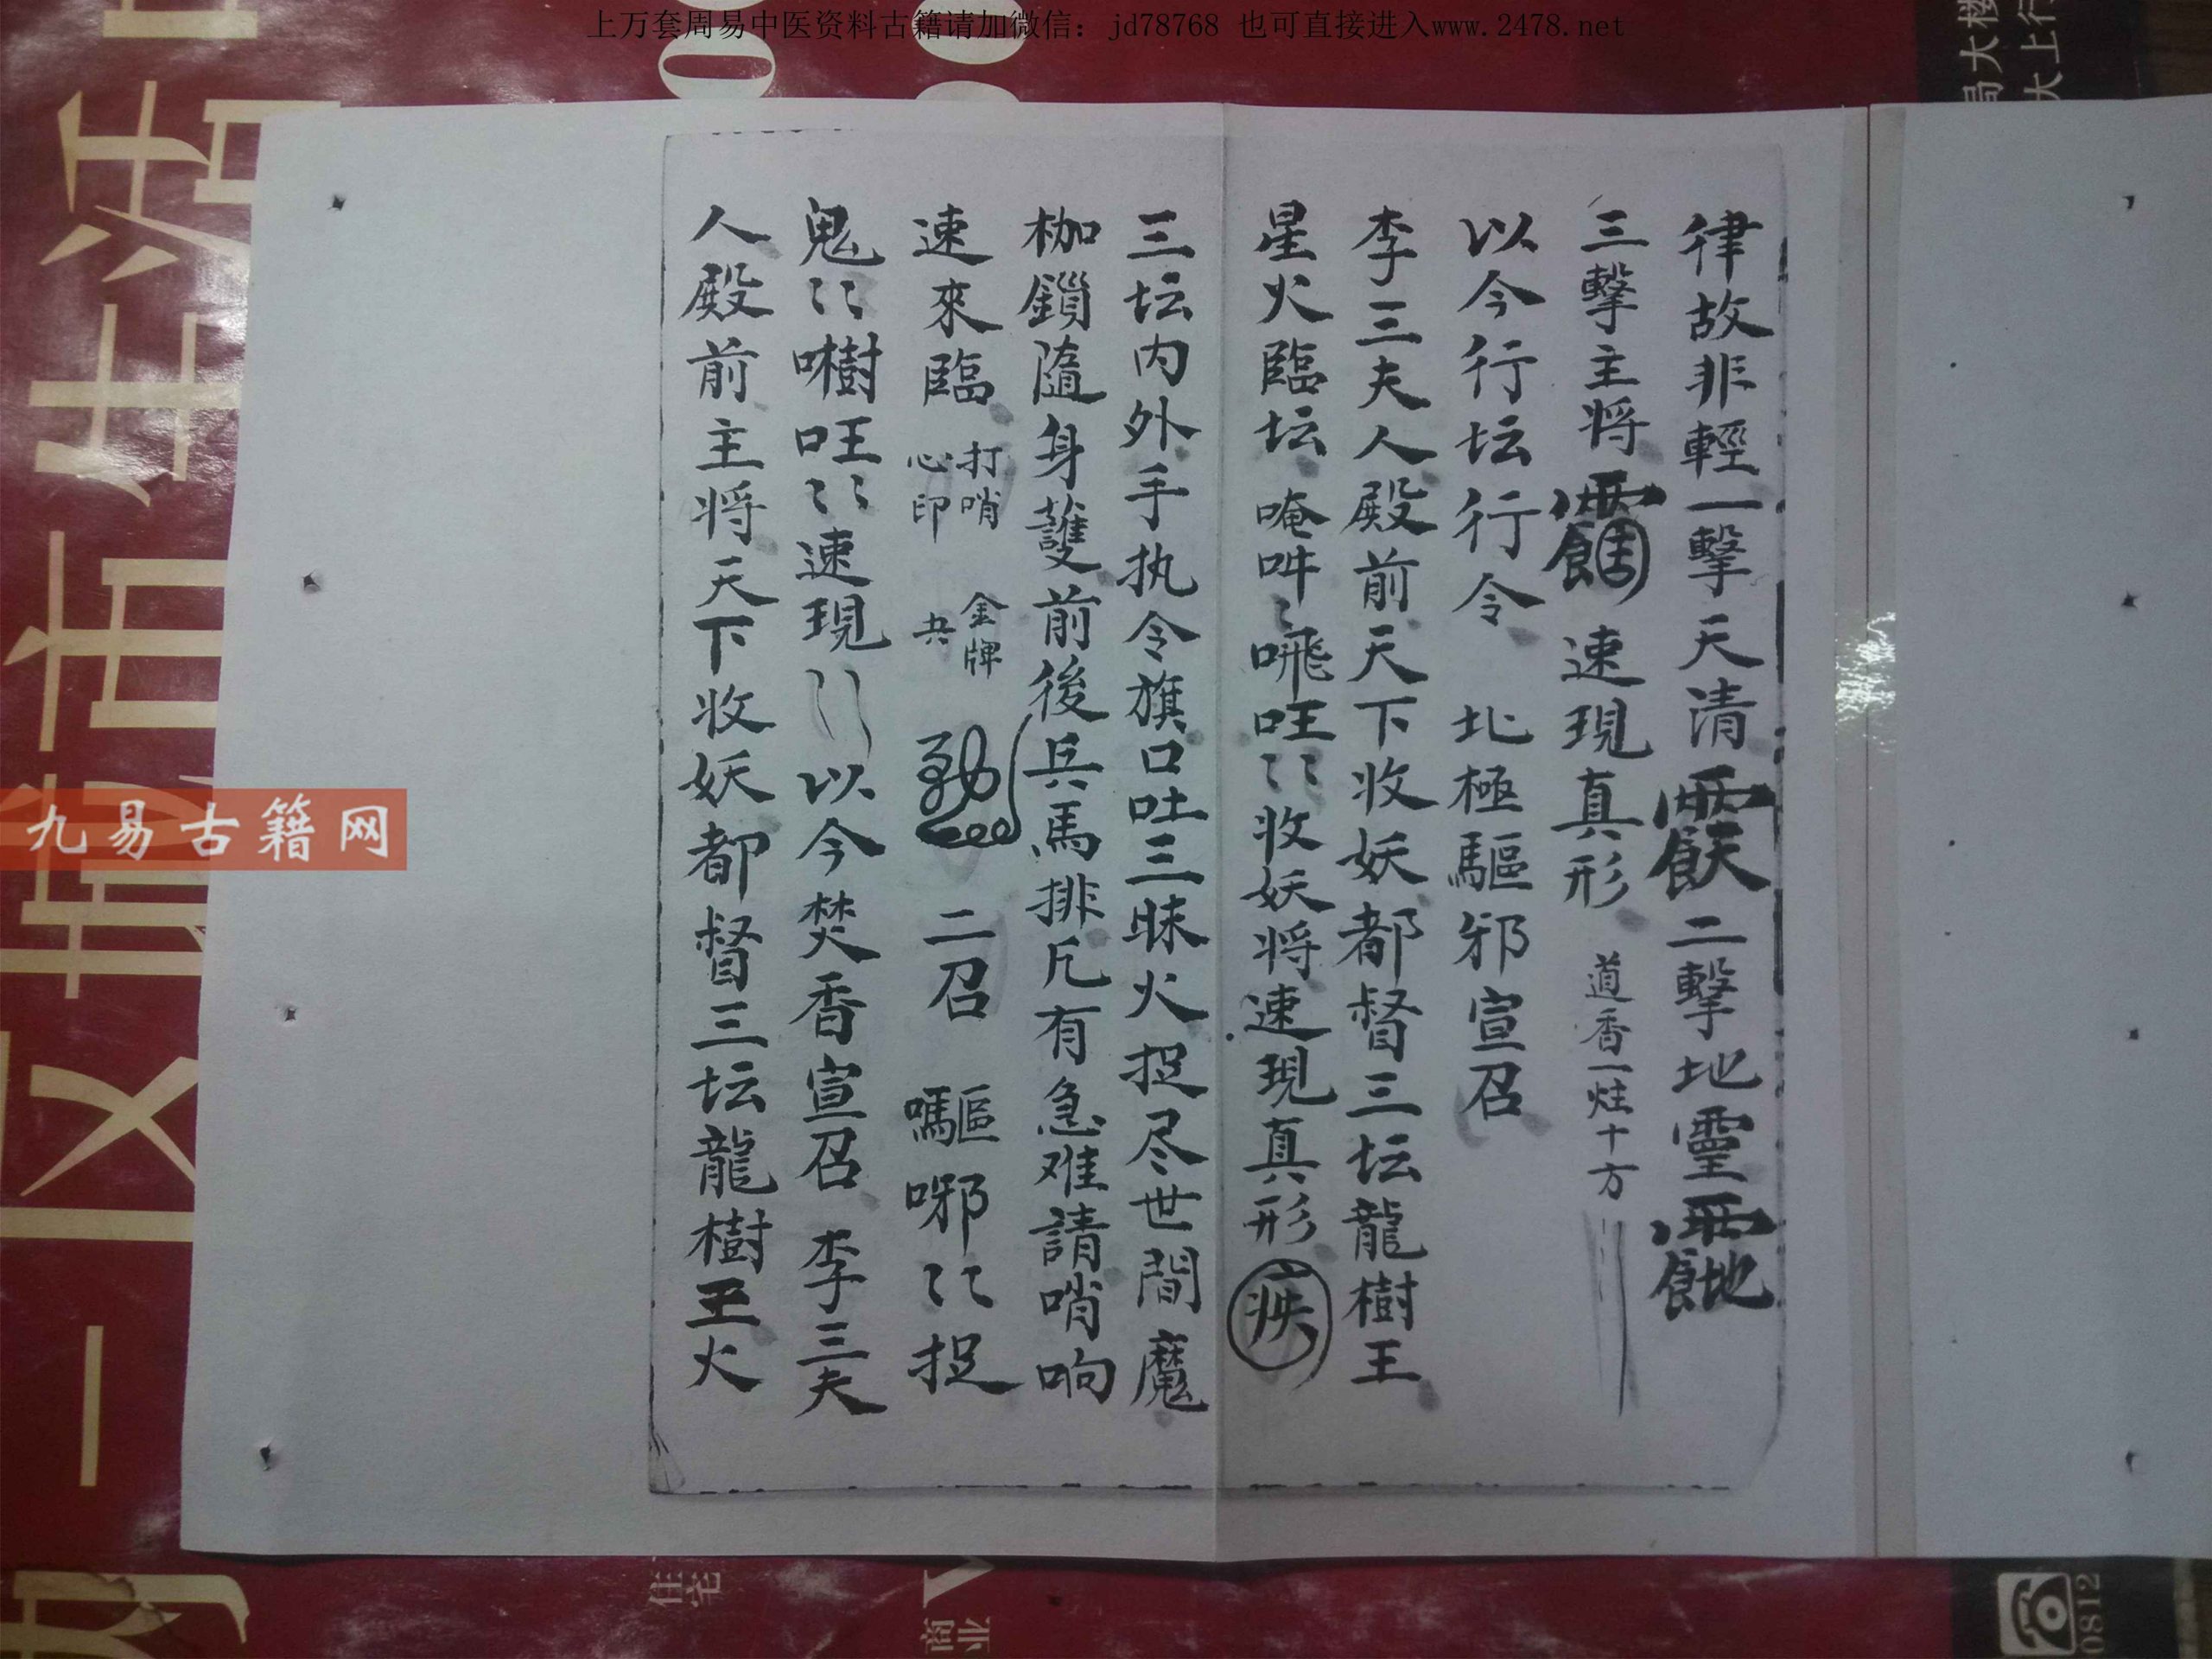 上万套周易中医资料古籍请加微信：jd78768 也可直接进入www.2478.net
律故非輕一擊天清二擊地靈
三擊主将速現真形 道香一炷十方
以今行坛行令 北極驅邪宣召
李三夫人殿前天下收妖都督三坛龍樹王
星火臨坛 唵吽〻㖠㕵〻收妖将速現真形㊋
三坛内外手执令旗口吐三昧火捉尽世間魔
枷鎖隨身護前後兵馬排凡有急难請哨响
速來臨 打哨 心印 金牌 二召 驅邪〻捉
鬼〻樹旺〻速現〻以今焚香宣召 李三夫
人殿前主将天下收妖都督三坛龍樹王火
九易古籍网
局大楼
大上行
住宅
商业
0812